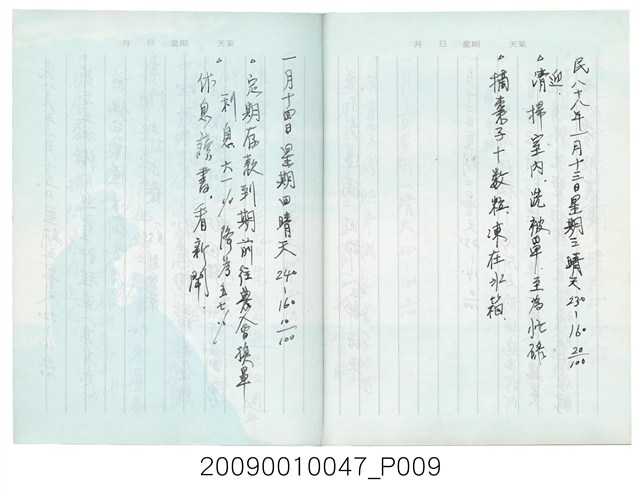 月 日 星期 天氣
民八十九年一月十三日星期三晴天 230~160 20/100
迎
△清掃室內.洗被單.至為忙碌
△摘棗子十數粒.凍在冰箱.
月 日 星期 天氣
一月十四日 星期四 晴天 240~160 10/100
△定期存款到期前往農會換單
利息六1%降為五七%
△休息讀書.看新聞.
20090010047_P009